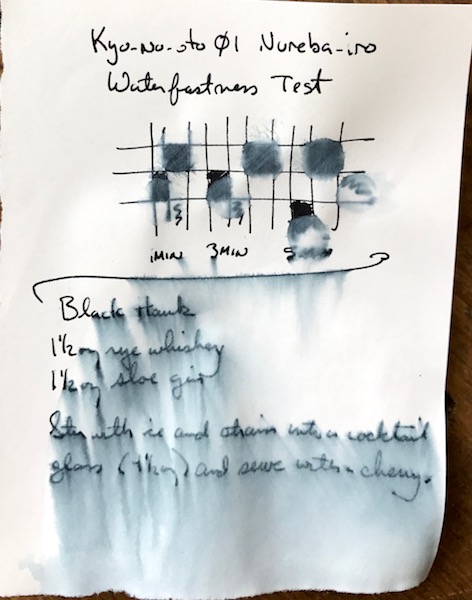 Kyo-no-oto Ø1 Nureba-iro
Waterfastness Test
1MIN 3MIN 5MIN
Black Hawk
1½ oz rye whiskey
1½ oz sloe gin
Stir with ice and strain into a cocktail
glass (4½ oz) and serve with a cherry.